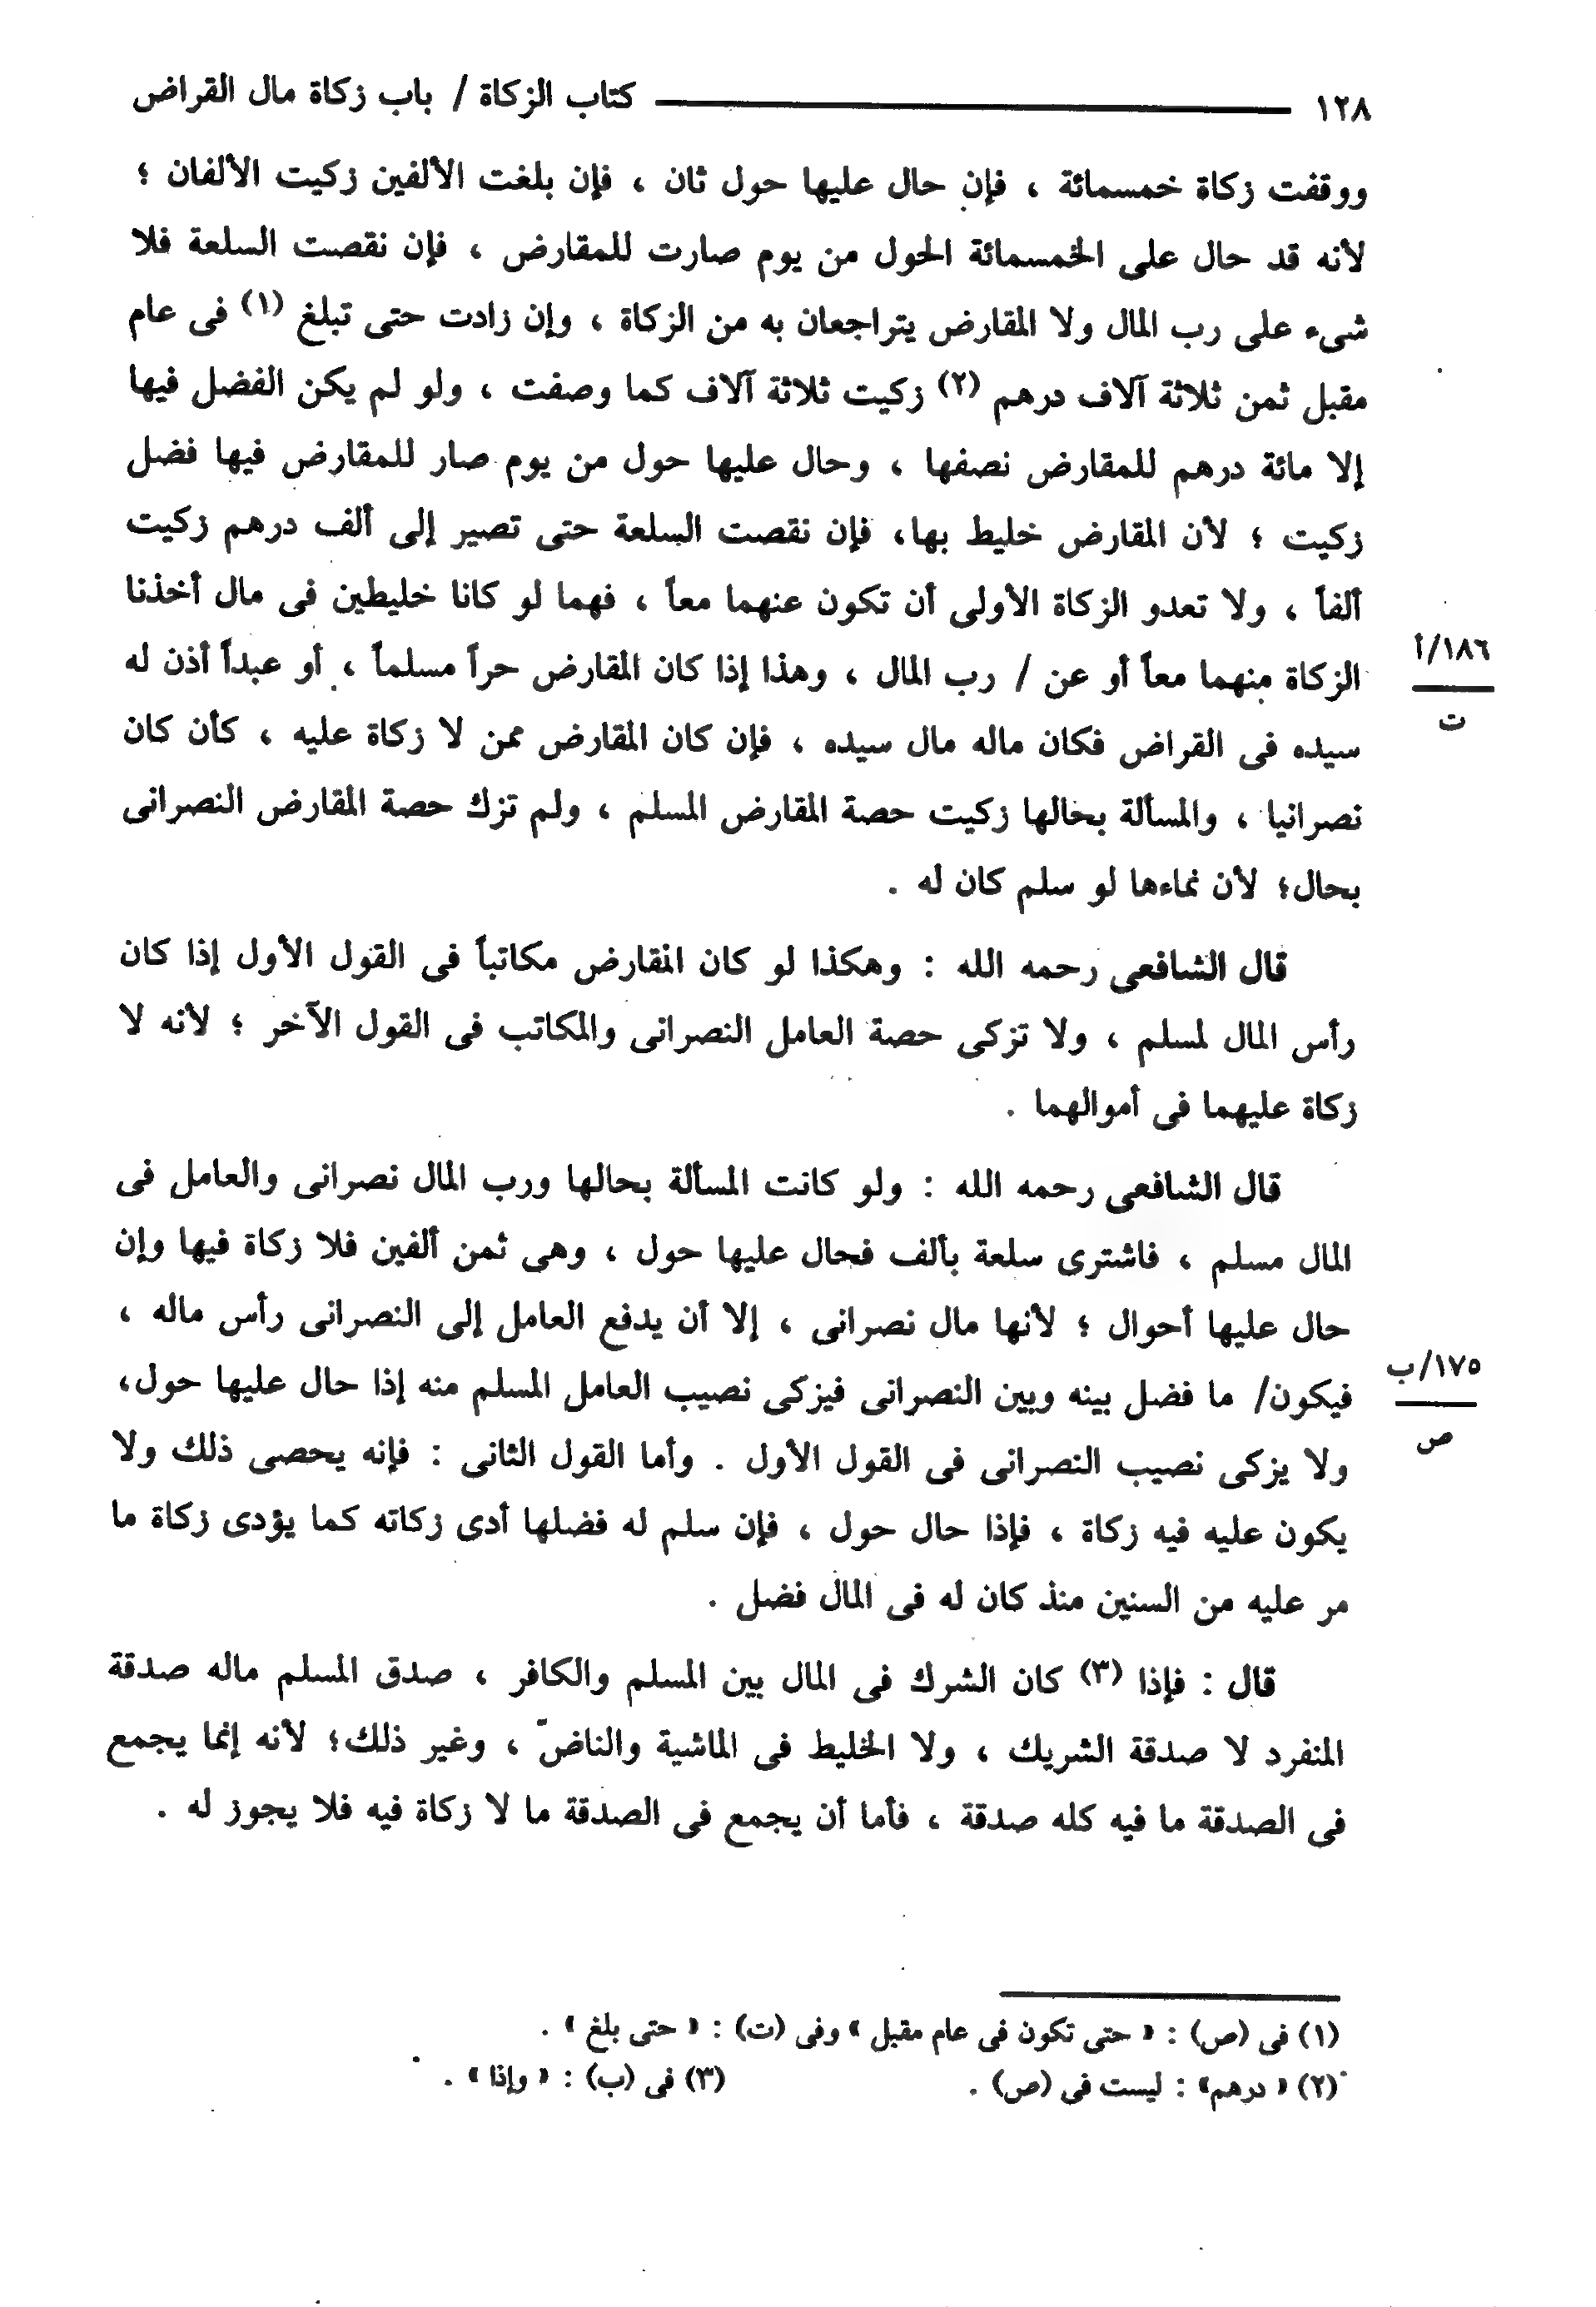 ١٢٨ كتاب الزكاة / باب زكاة مال القراض
ووقفت زكاة خمسمائة ، فإن حال عليها حول ثان ، فإن بلغت الألفين زكيت الألفان ؛
لأنه قد حال على الخمسمائة الحول من يوم صارت للمقارض ، فإن نقصت السلعة فلا
شىء على رب المال ولا المقارض يتراجعان به من الزكاة ، وإن زادت حتى تبلغ (١) فى عام
مقبل ثمن ثلاثة آلاف درهم (٢) زكيت ثلاثة آلاف كما وصفت ، ولو لم يكن الفضل فيها
إلا مائة درهم للمقارض نصفها ، وحال عليها حول من يوم صار للمقارض فيها فضل
زكيت ؛ لأن المقارض خليط بها، فإن نقصت السلعة حتى تصير إلى ألف درهم زكيت
ألفاً ، ولا تعدو الزكاة الأولى أن تكون عنهما معاً ، فهما لو كانا خليطين فى مال أخذنا
الزكاة منهما معاً أو عن / رب المال ، وهذا إذا كان المقارض حراً مسلماً ، أو عبداً أذن له
١٨٦/أ
ت
سيده فى القراض فكان ماله مال سيده ، فإن كان المقارض ممن لا زكاة عليه ، كأن كان
نصرانيا ، والمسألة بحالها زكيت حصة المقارض المسلم ، ولم تزك حصة المقارض النصرانى
بحال؛ لأن نماءها لو سلم كان له .
قال الشافعى رحمه الله : وهكذا لو كان المقارض مكاتباً فى القول الأول إذا كان
رأس المال لمسلم ، ولا تزكى حصة العامل النصرانى والمكاتب فى القول الآخر ؛ لأنه لا
زكاة عليهما فى أموالهما .
قال الشافعى رحمه الله : ولو كانت المسألة بحالها ورب المال نصرانى والعامل فى
المال مسلم ، فاشترى سلعة بألف فحال عليها حول ، وهى ثمن ألفين فلا زكاة فيها وإن
حال عليها أحوال ؛ لأنها مال نصرانى ، إلا أن يدفع العامل إلى النصرانى رأس ماله ،
فيكون/ ما فضل بينه وبين النصرانى فيزكى نصيب العامل المسلم منه إذا حال عليها حول،
١٧٥/ب
ص
ولا يزكى نصيب النصرانى فى القول الأول . وأما القول الثانى : فإنه يحصى ذلك ولا
يكون عليه فيه زكاة ، فإذا حال حول ، فإن سلم له فضلها أدى زكاته كما يؤدى زكاة ما
مر عليه من السنين منذ كان له فى المال فضل .
قال : فإذا (٣) كان الشرك فى المال بين المسلم والكافر ، صدق المسلم ماله صدقة
المنفرد لا صدقة الشريك ، ولا الخليط فى الماشية والناضّ ، وغير ذلك؛ لأنه إنما يجمع
فى الصدقة ما فيه كله صدقة ، فأما أن يجمع فى الصدقة ما لا زكاة فيه فلا يجوز له .
(١) فى (ص) : « حتى تكون فى عام مقبل » وفى (ت) : « حتى بلغ » .
(٢) « درهم» : ليست فى (ص) . (٣) فى (ب) : « وإذا » .